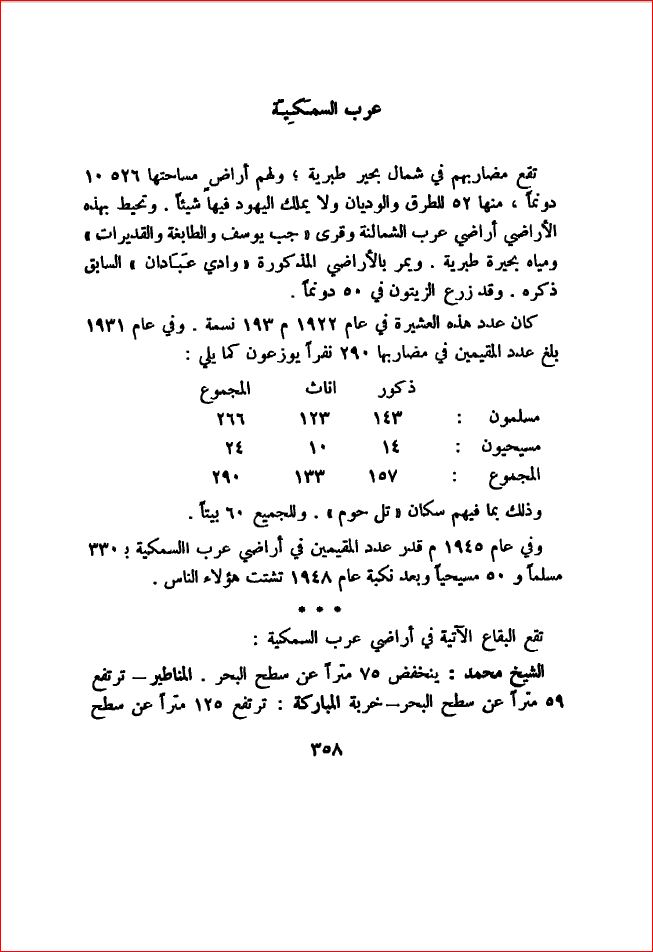 عرب السمكيّة
تقع مضاربهم في شمال بحير طبرية ؛ ولهم أراضٍ مساحتها ١٠ ٥٢٦
دونماً ، منها ٥٢ للطرق والوديان ولا يملك اليهود فيها شيئاً . وتحيط بهذه
الأراضي أراضي عرب الشمالنة وقرى « جب يوسف والطابغة والقديرات »
ومياه بحيرة طبرية . ويمر بالأراضي المذكورة « وادي عبّادان » السابق
ذكره . وقد زرع الزيتون في ٥٠ دونماً .
كان عدد هذه العشيرة في عام ١٩٢٢ م ١٩٣ نسمة . وفي عام ١٩٣١
بلغ عدد المقيمين في مضاربها ٢٩٠ نفراً يوزعون كما يلي :
ذكور اناث المجموع
مسلمون : ١٤٣ ١٢٣ ٢٦٦
مسيحيون : ١٤ ١٠ ٢٤
المجموع : ١٥٧ ١٣٣ ٢٩٠
وذلك بما فيهم سكان « تل حوم » . وللجميع ٦٠ بيتاً .
وفي عام ١٩٤٥ م قدر عدد المقيمين في أراضي عرب االسمكية بـ ٣٣٠
مسلماً و ٥٠ مسيحياً وبعد نكبة عام ١٩٤٨ تشتت هؤلاء الناس .
* * *
تقع البقاع الآتية في أراضي عرب السمكية :
الشيخ محمد : ينخفض ٧٥ متراً عن سطح البحر . المناطير – ترتفع
٥٩ متراً عن سطح البحر – خربة المباركة : ترتفع ١٢٥ متراً عن سطح
٣٥٨